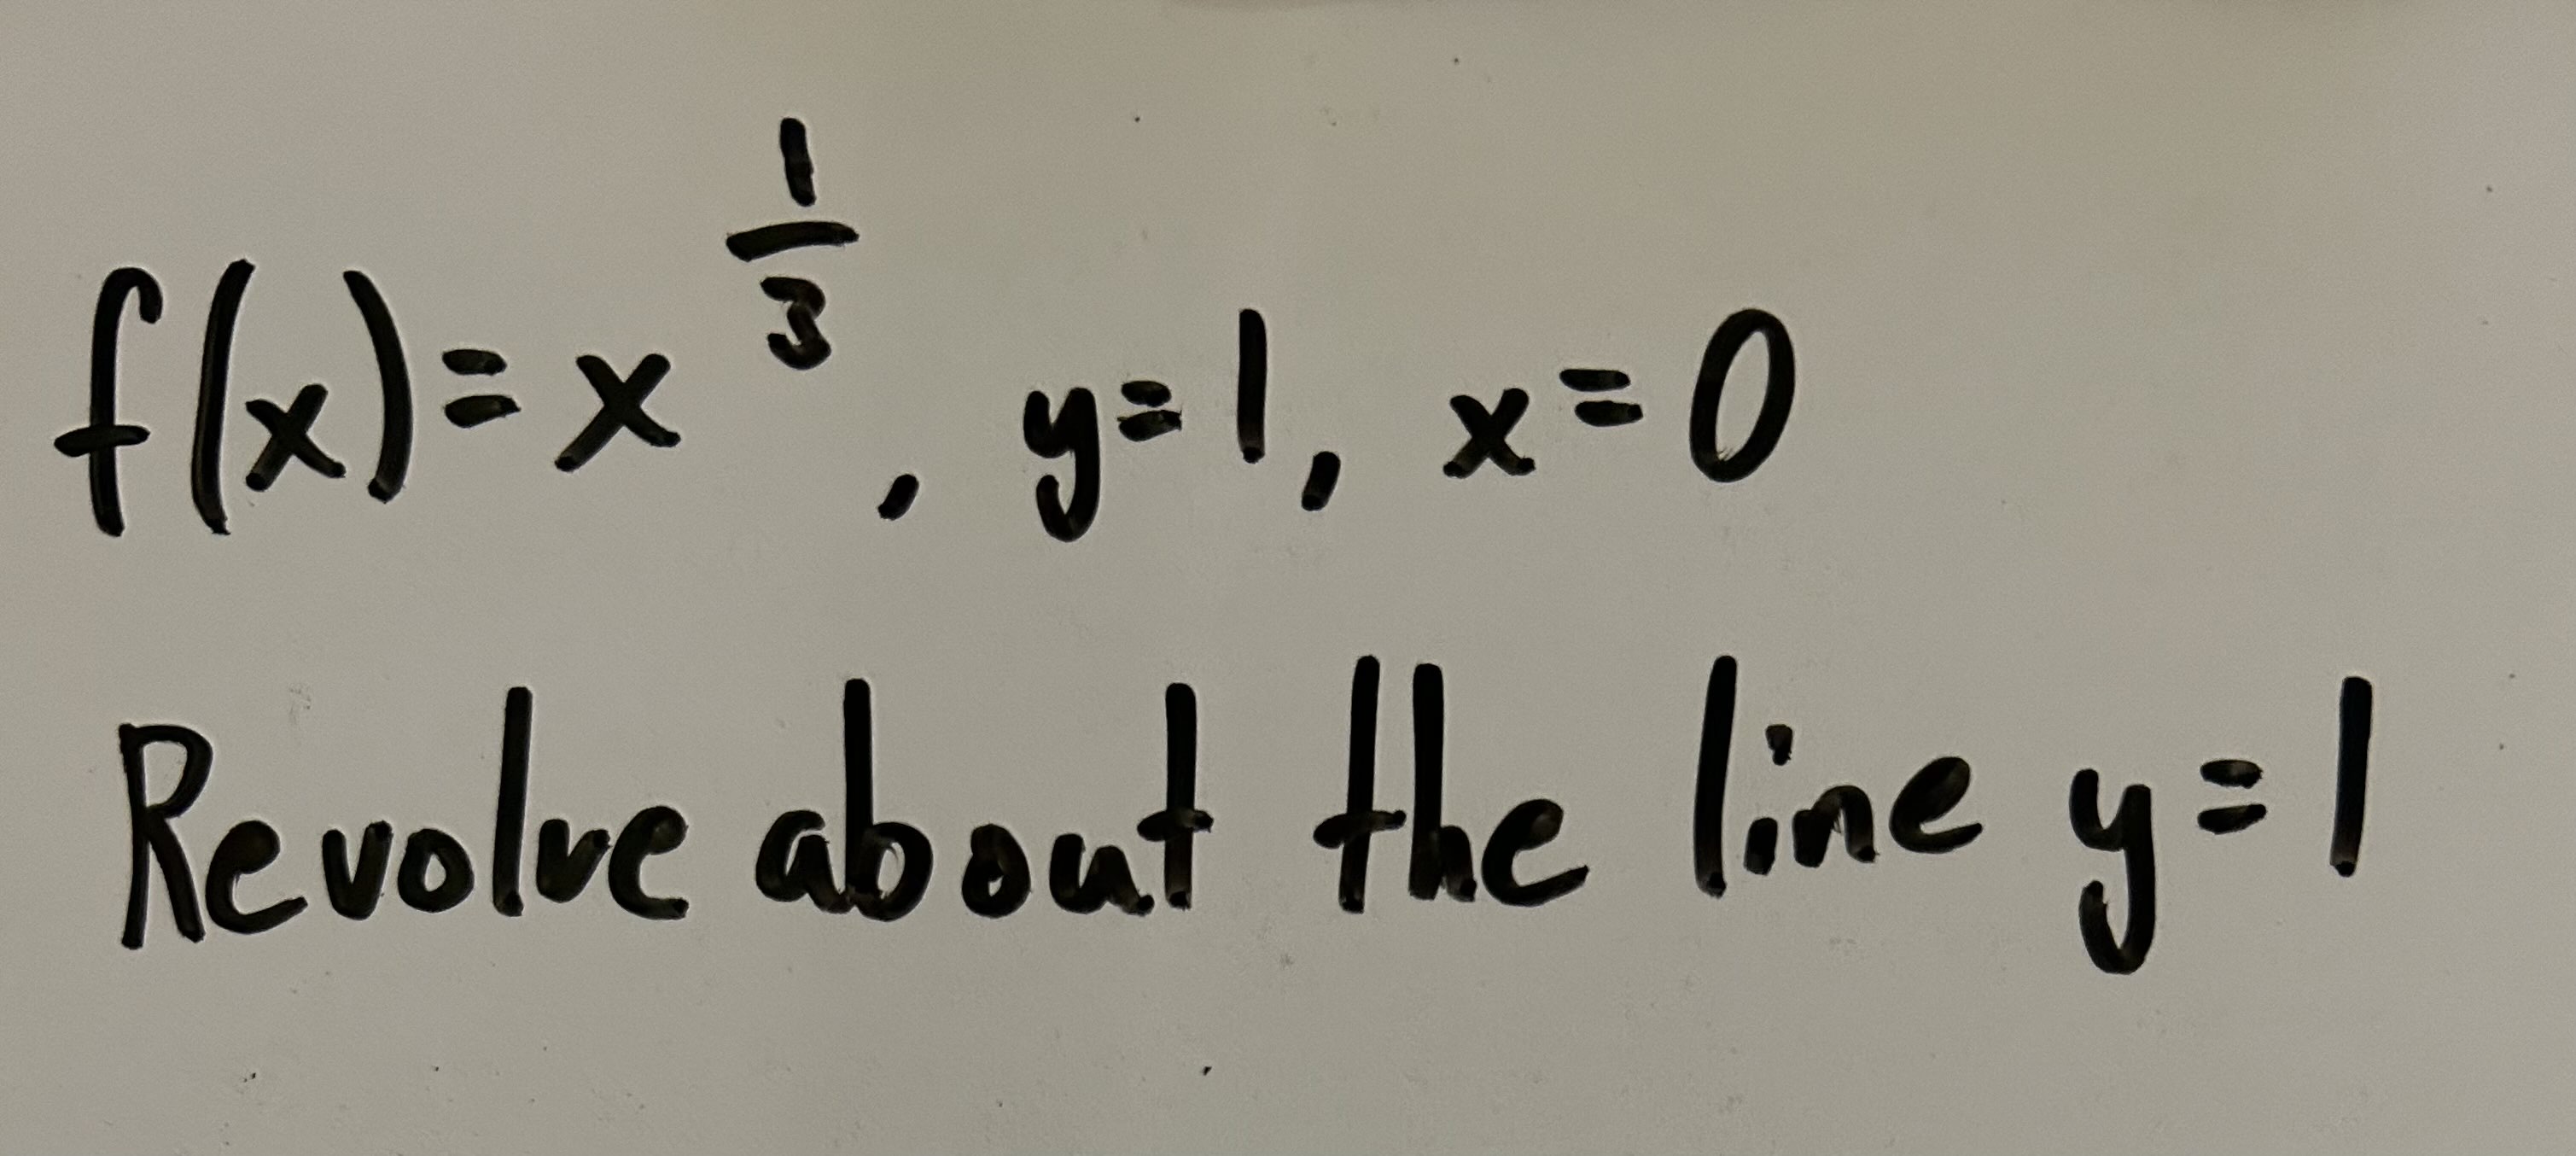 f(x)=x^{\frac{1}{3}}, y=1, x=0
Revolve about the line y=1